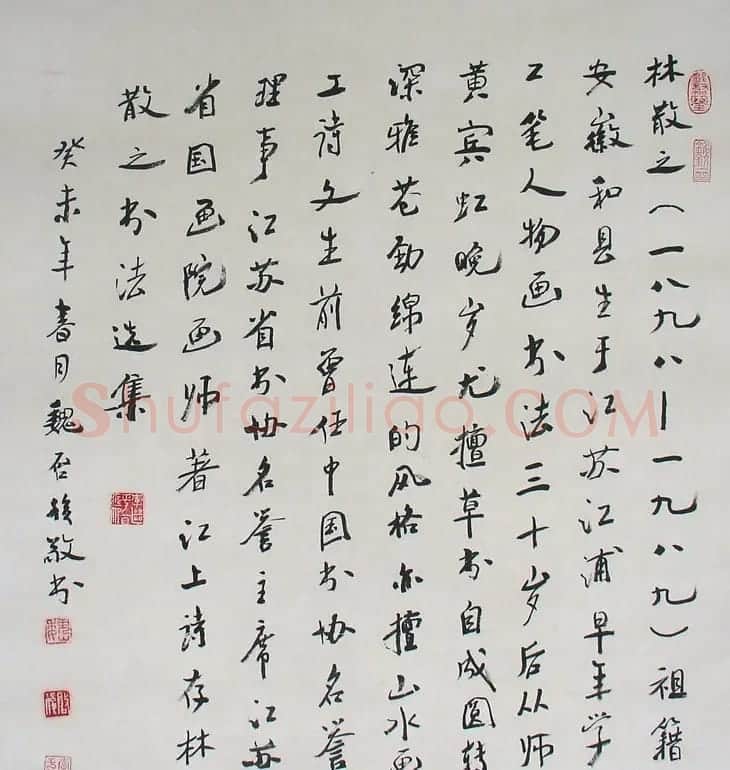 林散之（一八九八—一九八九）祖籍
安徽和县生于江苏江浦早年学
工笔人物画书法三十岁后从师
黄宾虹晚岁尤擅草书自成圆转
深雅苍劲绵连的风格亦擅山水画
工詩文生前曾任中国书协名誉
理事江苏省书协名誉主席江苏
省国画院画师著江上詩存林
散之书法选集
癸未年春月魏啟後敬书
Shufaziliao.COM